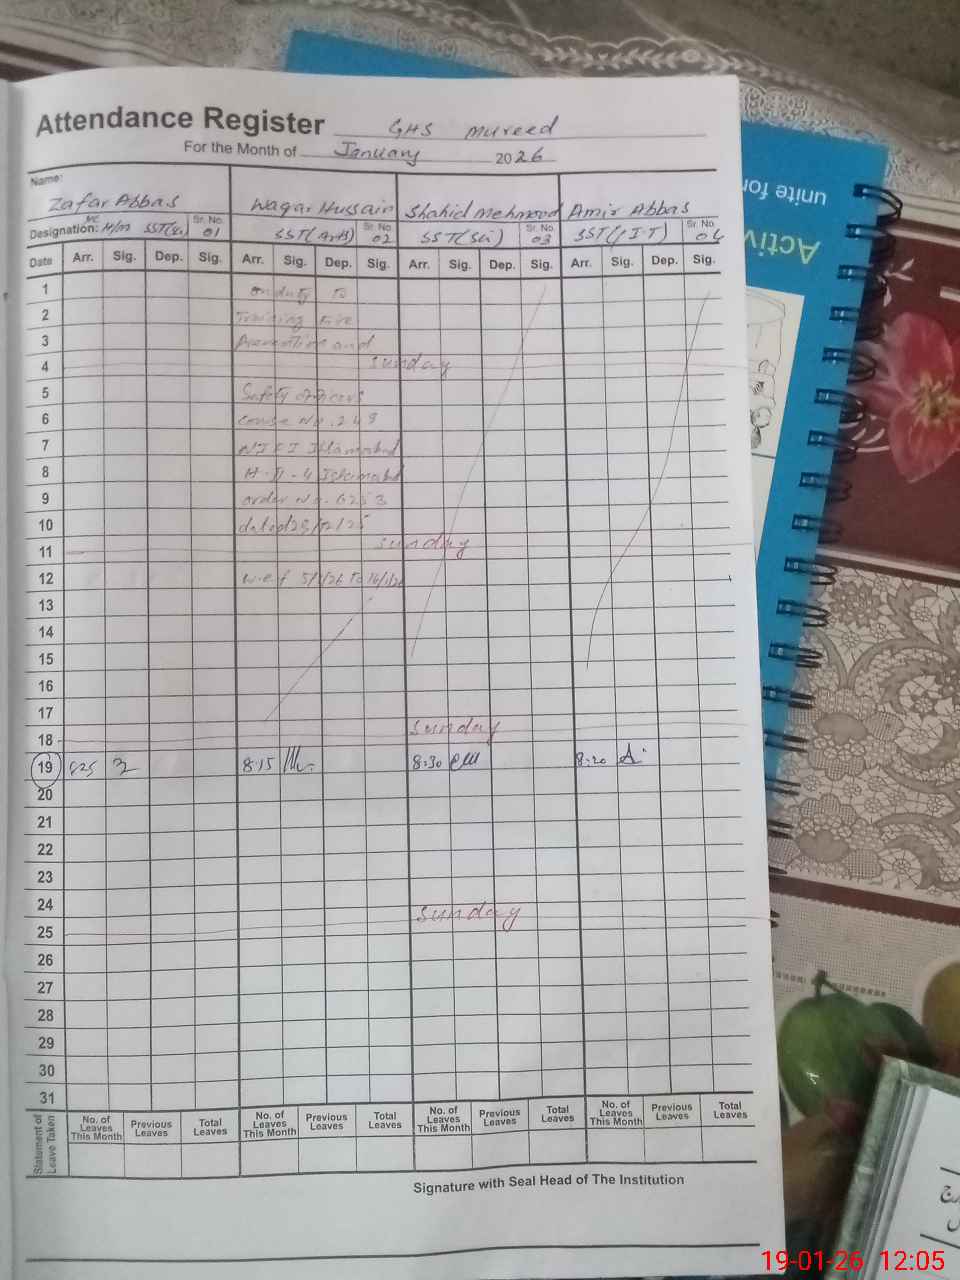 Attendance Register GHS Mureed
For the Month of January 2026
Name:
Zafar Abbas Waqar Hussain Shahid Mehmood Amir Abbas
Designation: I/C H/M SST(Sci) Sr. No. 01 SST(Arts) Sr. No. 02 SST(Sci) Sr. No. 03 SST(IT) Sr. No. 04
Date Arr. Sig. Dep. Sig. Arr. Sig. Dep. Sig. Arr. Sig. Dep. Sig. Arr. Sig. Dep. Sig.
1 on duty to
2 Training Fire
3 Prevention and
4 Sunday
5 Safety officers
6 course No. 249
7 NIFI Islamabad
8 H-11-4 Islamabad
9 order No. 6253
10 dated 29/12/25
11 Sunday
12 w.e.f 5/1/26 To 16/1/26
13
14
15
16
17
18 Sunday
19 8:25 8:15 8:30 8:20
20
21
22
23
24
25 Sunday
26
27
28
29
30
31
Statement of Leave Taken
No. of Leaves This Month Previous Leaves Total Leaves No. of Leaves This Month Previous Leaves Total Leaves No. of Leaves This Month Previous Leaves Total Leaves No. of Leaves This Month Previous Leaves Total Leaves
Signature with Seal Head of The Institution
unite for
Activ
19-01-26 12:05